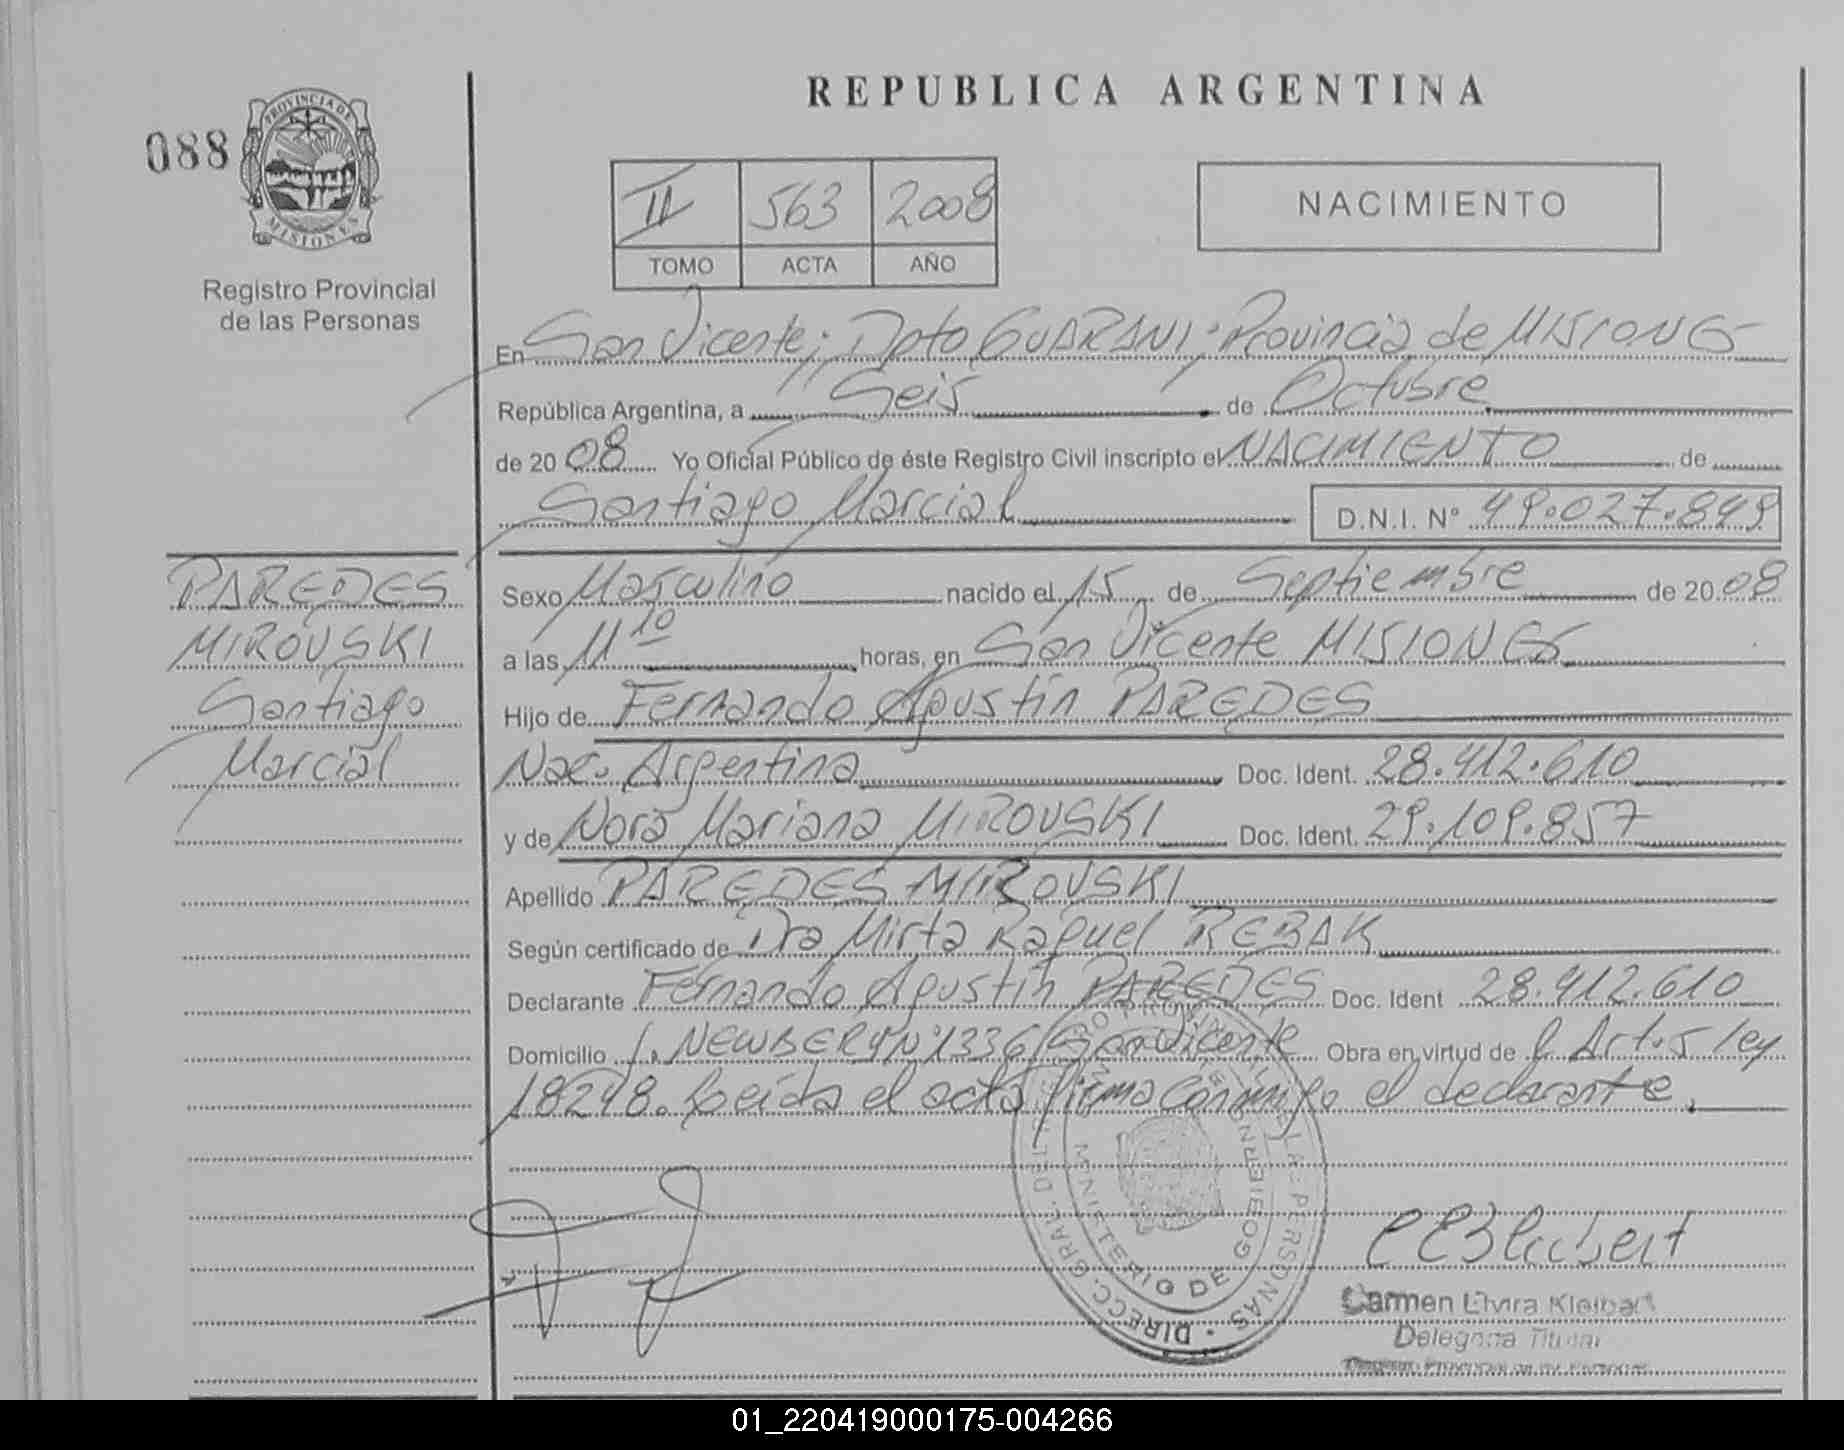 REPUBLICA ARGENTINA
088
PROVINCIA DE
MISIONES
Registro Provincial
de las Personas
II 563 2008
TOMO ACTA AÑO
NACIMIENTO
En San Vicente; Dpto GUARANI; Provincia de MISIONES
República Argentina, a Seis de Octubre
de 2008 Yo Oficial Público de éste Registro Civil inscripto el NACIMIENTO de
Santiago Marcial D.N.I. Nº 49.027.849
PAREDES
MIROVSKI
Santiago
Marcial
Sexo Masculino nacido el 15 de Septiembre de 2008
a las 11 10 horas, en San Vicente MISIONES
Hijo de Fernando Agustín PAREDES
Nac. Argentina Doc. Ident. 28.412.610
y de Nora Mariana MIROVSKI Doc. Ident. 29.109.857
Apellido PAREDES MIROVSKI
Según certificado de Dra Mirta Raquel REBAK
Declarante Fernando Agustín PAREDES Doc. Ident 28.412.610
Domicilio J. NEWBERY Nº 1336 San Vicente Obra en virtud de l Art. 5 ley
18248. Leída el acta firma conmigo el declarante.
DIRECC. GRAL. DEL PERSONAS
MINISTERIO DE GOBIERNO
Carmen Elvira Kleibert
Delegada Titular
01_220419000175-004266